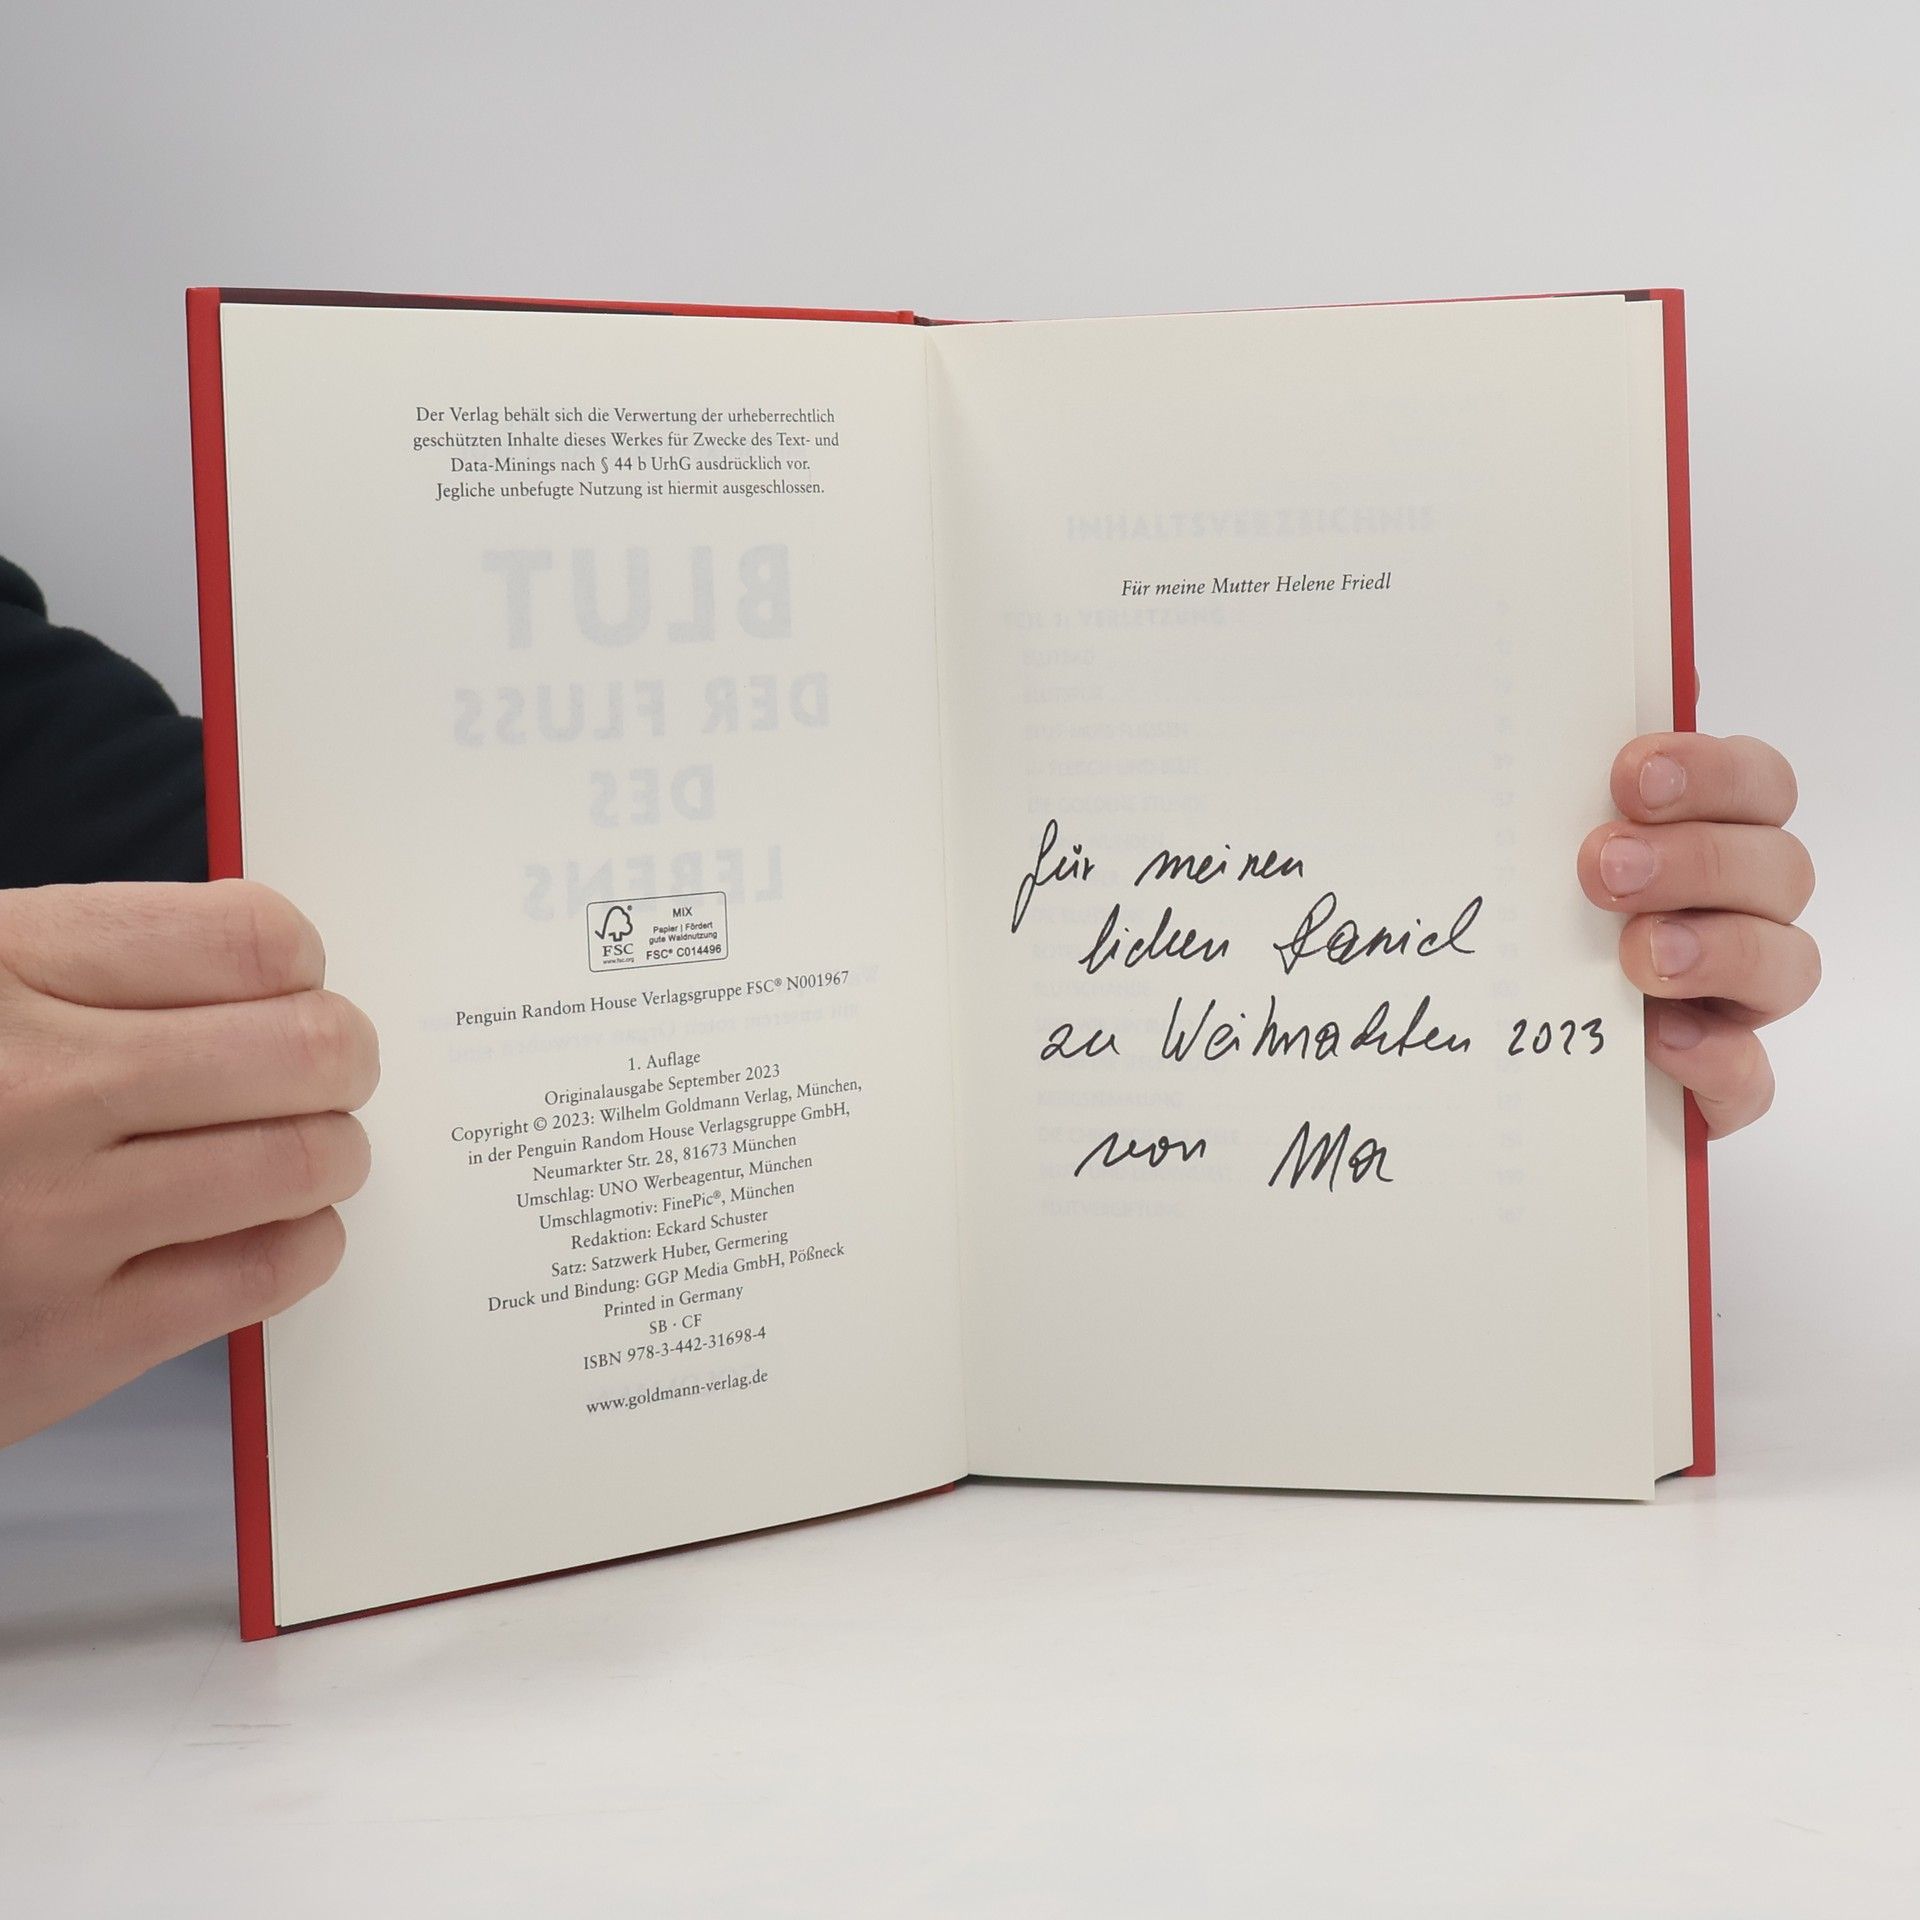 Der Verlag behält sich die Verwertung der urheberrechtlich
geschützten Inhalte dieses Werkes für Zwecke des Text- und
Data-Minings nach § 44 b UrhG ausdrücklich vor.
Jegliche unbefugte Nutzung ist hiermit ausgeschlossen.
BLUT
DER FLUSS
DES
LEBENS
FSC®
www.fsc.org
MIX
Papier | Fördert
gute Waldnutzung
FSC® C014496
Penguin Random House Verlagsgruppe FSC® N001967
1. Auflage
Originalausgabe September 2023
Copyright © 2023: Wilhelm Goldmann Verlag, München,
in der Penguin Random House Verlagsgruppe GmbH,
Neumarkter Str. 28, 81673 München
Umschlag: UNO Werbeagentur, München
Umschlagmotiv: FinePic®, München
Redaktion: Eckard Schuster
Satz: Satzwerk Huber, Germering
Druck und Bindung: GGP Media GmbH, Pößneck
Printed in Germany
SB · CF
ISBN 978-3-442-31698-4
www.goldmann-verlag.de
INHALTSVERZEICHNIS
Für meine Mutter Helene Friedl
TEIL 1: VERLETZUNG
für meinen
lieben Daniel
zu Weihnachten 2023
von Ma